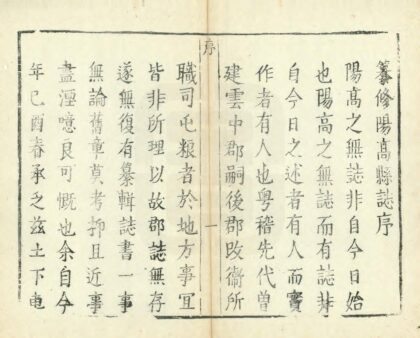 纂修陽高縣誌序
陽高之無誌非自今日始
也陽高之無誌而有誌非
自今日之述者有人而實
作者有人也粤稽先代曽
建雲中郡嗣後郡改衞所
序
一
職司屯粮者於地方事冝
皆非所理以故郡誌無存
遂無復有纂輯誌書一事
無論舊章莫考抑且近事
盡湮噫良可慨也余自今
年巳酉春承之兹土下車